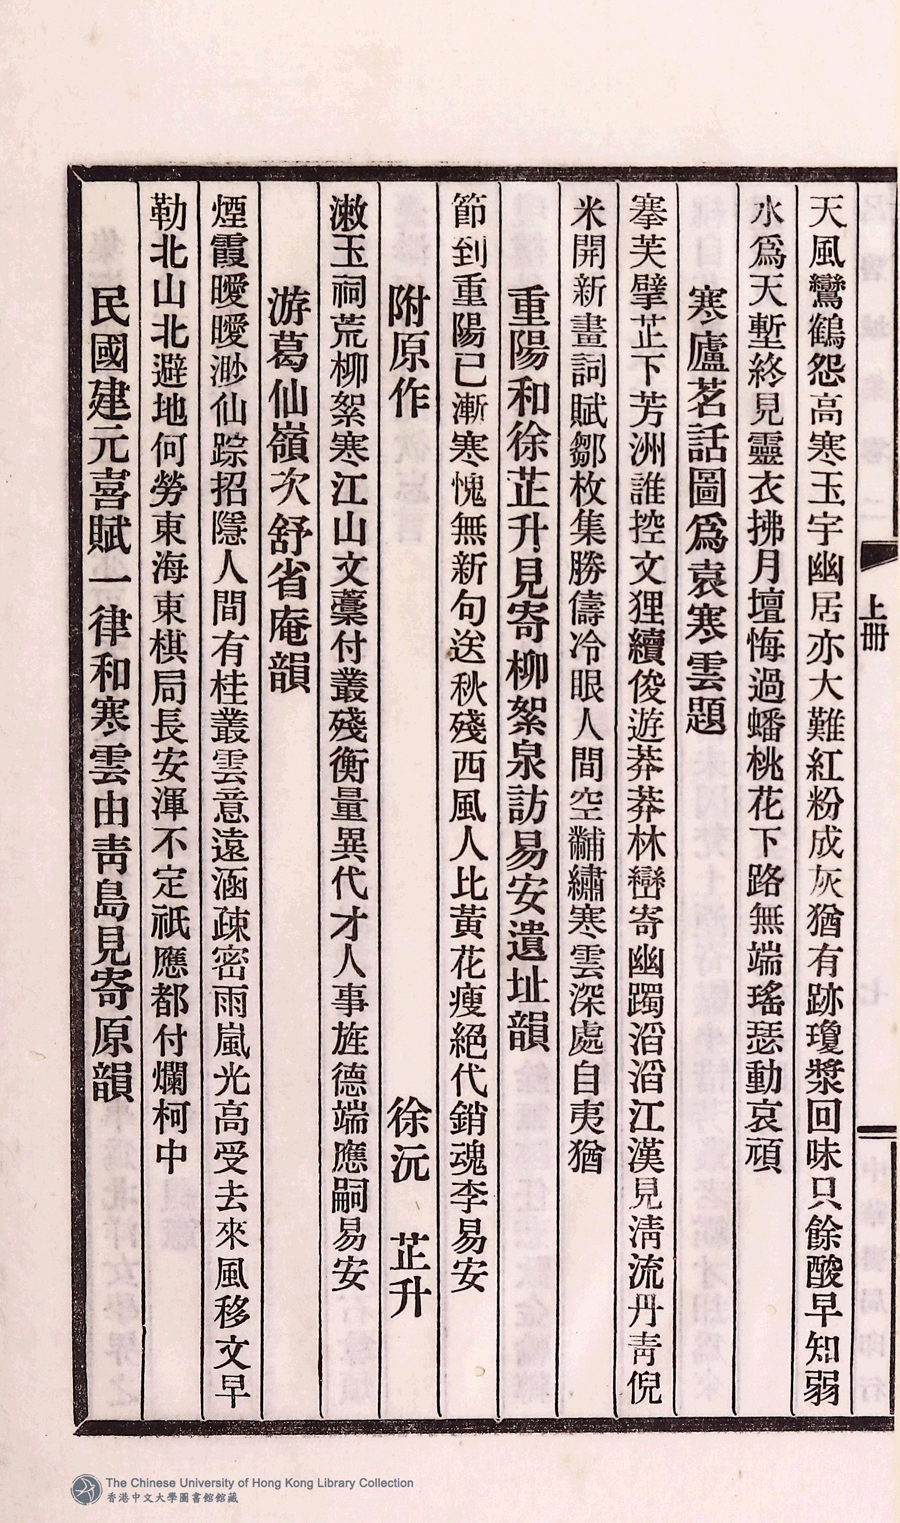 上冊
天風鸞鶴怨高寒玉宇幽居亦大難紅粉成灰猶有跡瓊漿回味只餘酸早知弱
水爲天塹終見靈衣拂月壇悔過蟠桃花下路無端瑤瑟動哀頑
寒廬茗話圖爲袁寒雲題
搴芙擘芷下芳洲誰控文狸續俊遊莽莽林巒寄幽躅滔滔江漢見淸流丹靑倪
米開新畫詞賦鄒枚集勝儔冷眼人間空黼繡寒雲深處自夷猶
重陽和徐芷升見寄柳絮泉訪易安遺址韻
節到重陽已漸寒愧無新句送秋殘西風人比黃花瘦絕代銷魂李易安
附原作 徐沅 芷升
漱玉祠荒柳絮寒江山文藁付叢殘衡量異代才人事旌德端應嗣易安
游葛仙嶺次舒省庵韻
煙霞曖曖渺仙踪招隱人間有桂叢雲意遠涵疎密雨嵐光高受去來風移文早
勒北山北避地何勞東海東棋局長安渾不定祇應都付爛柯中
民國建元喜賦一律和寒雲由靑島見寄原韻
The Chinese University of Hong Kong Library Collection
香港中文大學圖書館館藏